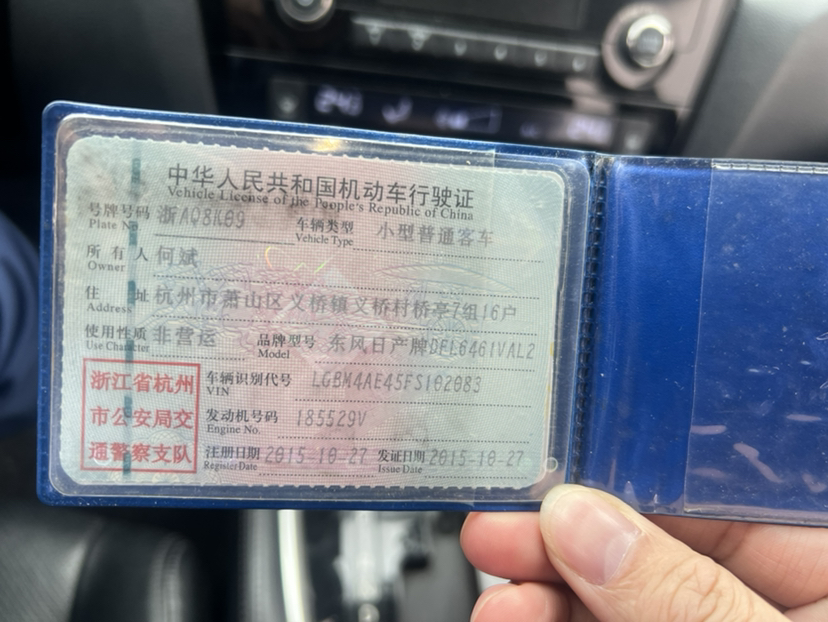 中华人民共和国机动车行驶证
Vehicle License of the People's Republic of China
号牌号码 浙AQ8K09 车辆类型 小型普通客车
Plate No. Vehicle Type
所有人 何斌
Owner
住址 杭州市萧山区义桥镇义桥村桥亭7组16户
Address
使用性质 非营运 品牌型号 东风日产牌DFL6461VAL2
Use Character Model
浙江省杭州 车辆识别代号 LGBM4AE45FS102083
VIN
市公安局交 发动机号码 185529V
Engine No.
通警察支队 注册日期 2015-10-27 发证日期 2015-10-27
Register Date Issue Date